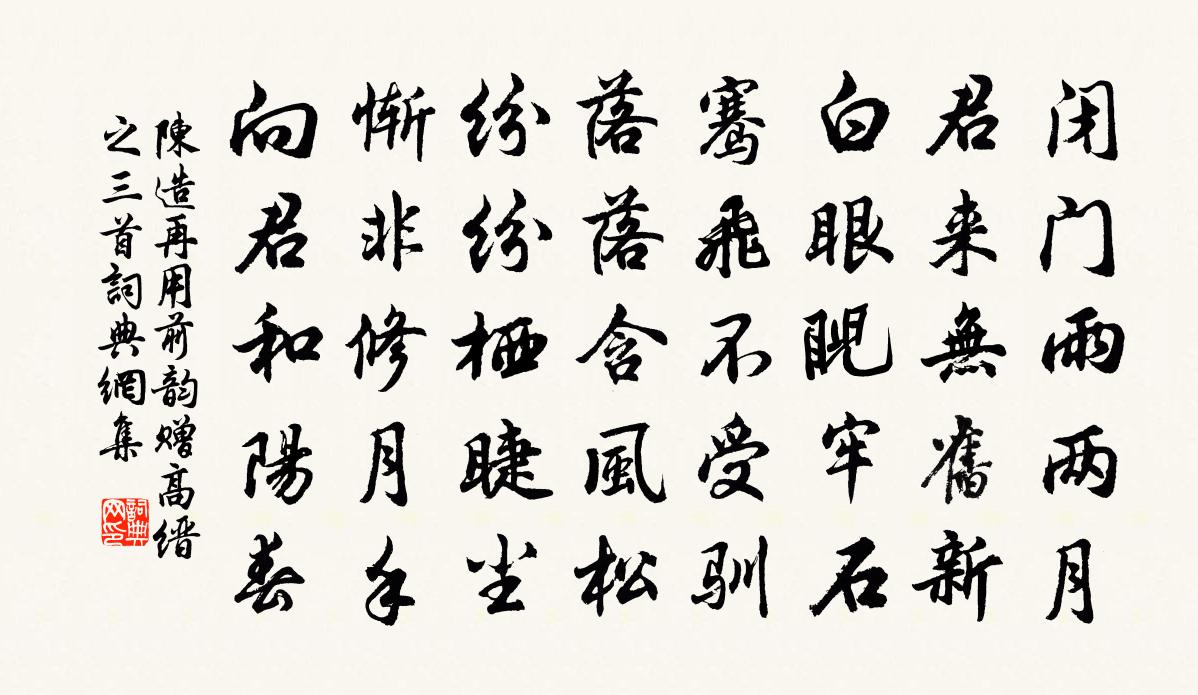 闭门雨两月
君来無舊新
白眼睨牢石
骞飛不受驯
落落含風松
纷纷栖睫尘
惭非修月手
向君和陽春
陳造再用前韵赠高缙
之三首詞典網集
詞典网印